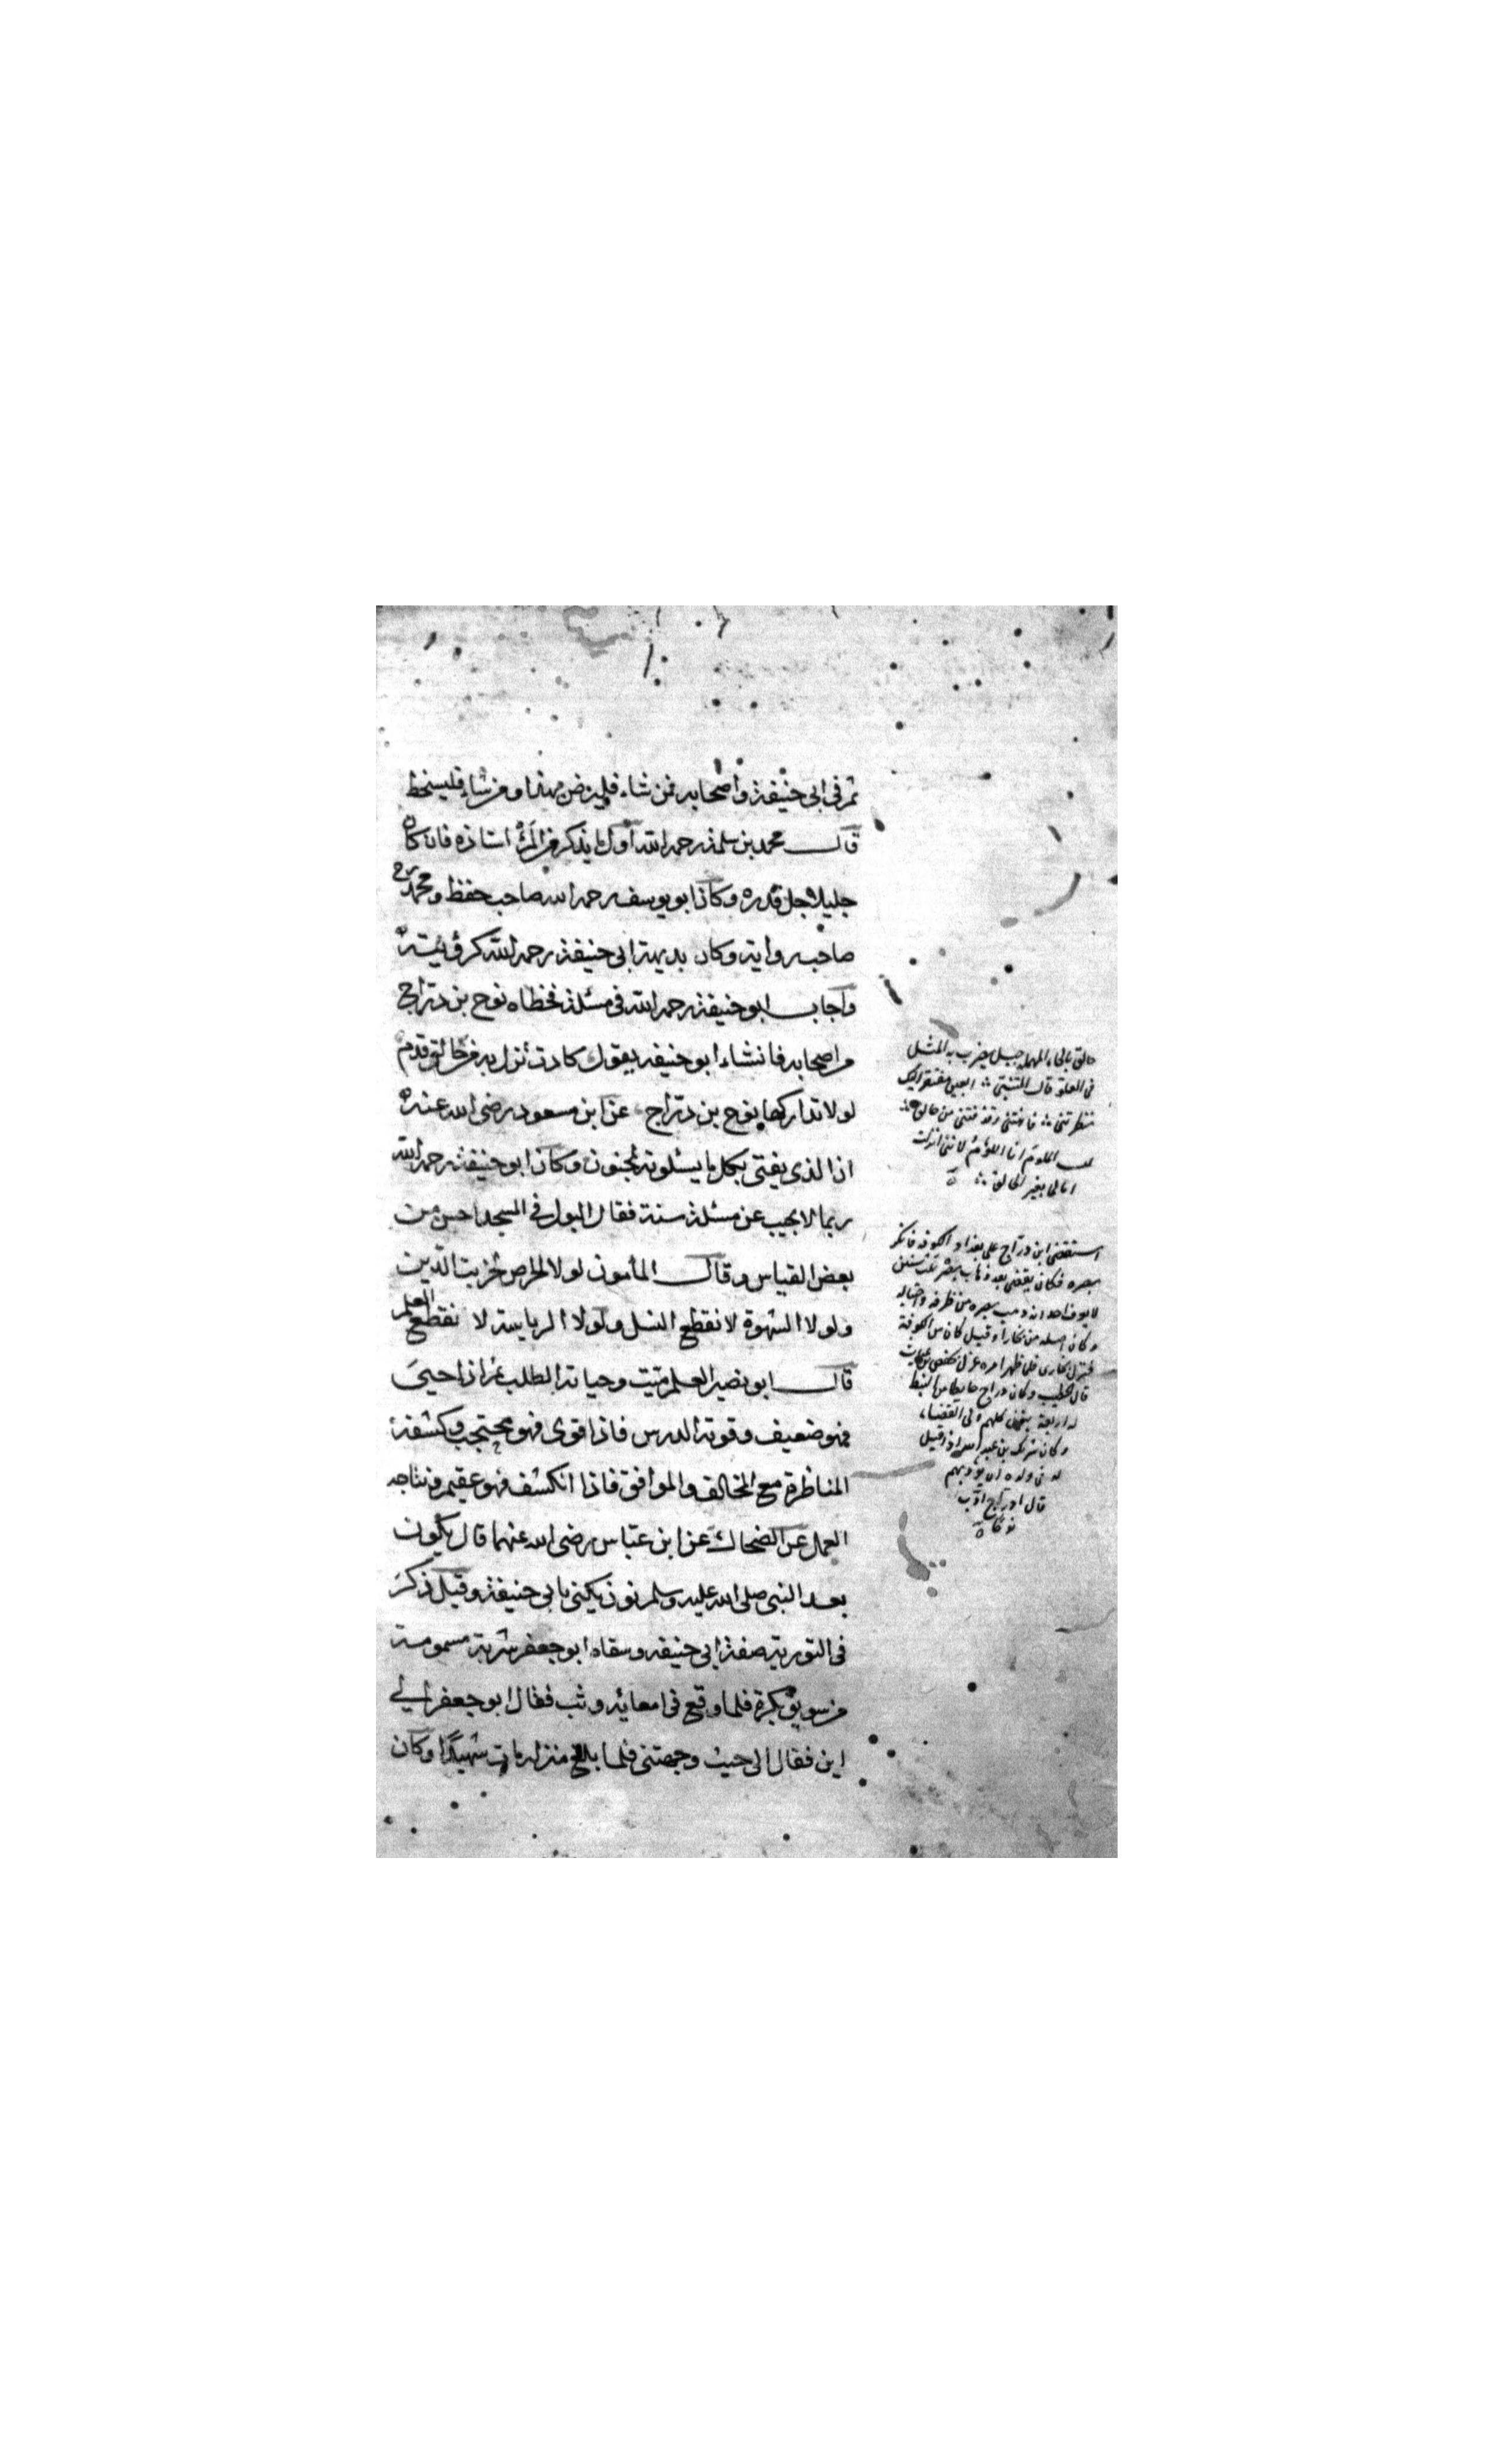 ثم في ابي حنيفة واصحابه فمن شاء فليرض بهذا ومن شاء فليسخط
قال محمد بن سلمة رحمه الله اول ما يذكر من المرء استاذه فان كان
جليلا جل قدره وكان ابو يوسف رحمه الله صاحب حفظ ومحمد رح
صاحب رواية وكان بديهة ابي حنيفة رحمه الله كرؤيته
واجاب ابو حنيفة رحمه الله في مسئلة فخطاه نوح بن دراج
من اصحابه فانشاء ابو حنيفه يقول كادت تزل به من حالق قدم
لولا تداركها نوح بن دراج عن ابن مسعود رضى الله عنه
ان الذى يفتى بكل ما يسئلونه لمجنون وكان ابو حنيفة رحمه الله
ربما لا يجيب عن مسئلة سنة فقال البول في المسجد احسن من
بعض القياس وقال المأمون لولا الحرص لخربت الدين
ولولا الشهوة لانقطع النسل ولولا الرياسة لا نقطع العلم
قال ابو نصير العلم ميت وحياته الطلب ثم اذا حيي
فهو ضعيف وقوته الدرس فاذا قوى فهو محتجب وكشفه
المناظرة مع المخالف والموافق فاذا انكشف فهو عقيم ونتاجه
العمل عن الضحاك عن ابن عباس رضى الله عنهما قال يكون
بعد النبى صلى الله عليه وسلم نور يكنى بابى حنيفة وقيل ذكر
في التورية صفة ابى حنيفه وسقاه ابو جعفر شربة مسمومة
من سويق بكرة فلما وقع في امعائه وثب فقال ابو جعفر الى
اين فقال الى حيث وجهتنى فلما بلغ منزله مات شهيدا وكان
حالق بالحاء المهملة جبل يضرب به المثل
في العلو قال المتنبي
من حالق
انا اللؤم لاننى انزلت
امالى بغير الخالق
استقضى ابن دراج على بغداد الكوفه فانكر
بصره فكان يقضى بعد ذهاب بصره ثلث سنين
لا يعرف احد انه ذهب بصره من ظرفه
وكان اصله من بخارا وقيل كان من الكوفة
فنزل بخارى فلما ظهر امره عزل
قال الخطيب وكان دراج حايكا من النبط
له اربعة كلهم ولى القضاء
وكان شريك بن عبد الله اذا قيل